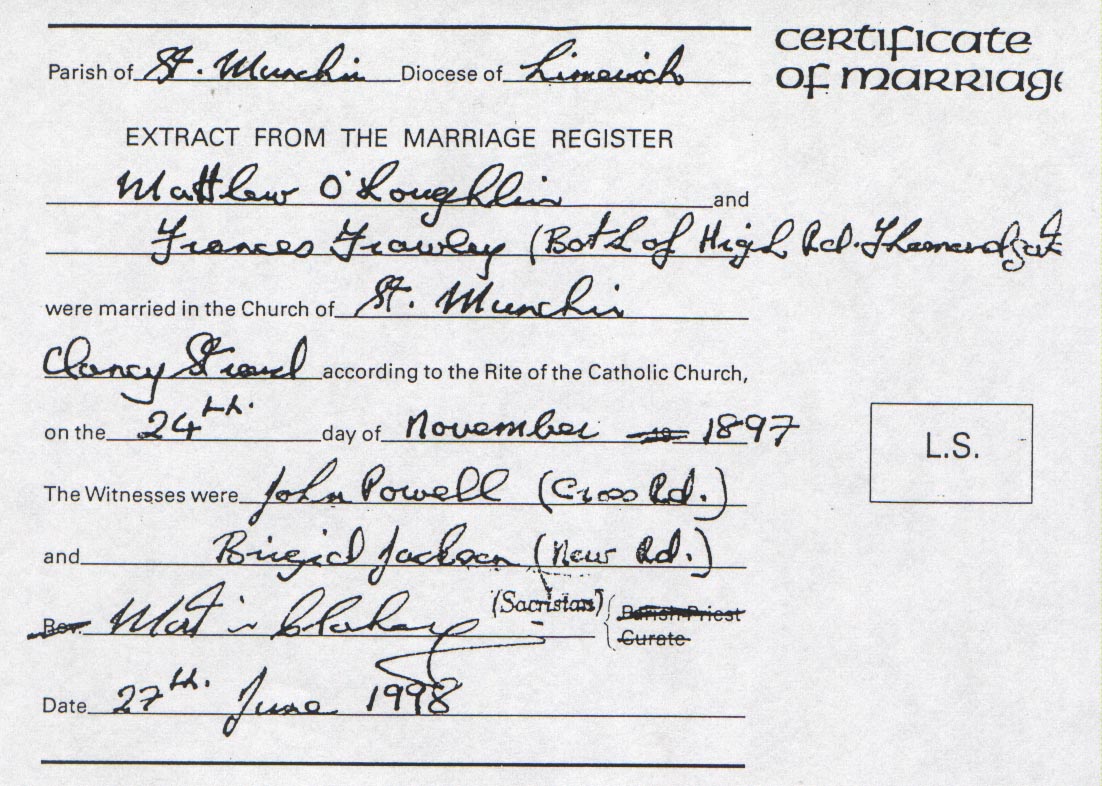 certificate
of marriage
Parish of St. Munchin Diocese of Limerick
EXTRACT FROM THE MARRIAGE REGISTER
Matthew O'Loughlin and
Frances Frawley (Both of High Rd. Thomondgate
were married in the Church of St. Munchin
Clancy Strand according to the Rite of the Catholic Church,
on the 24th. day of November 19 1897
L.S.
The Witnesses were John Powell (Cross Rd.)
and Brigid Jackson (New Rd.)
Rev. Martin (Sacristan) Parish Priest
Curate
Date 27th. June 1998